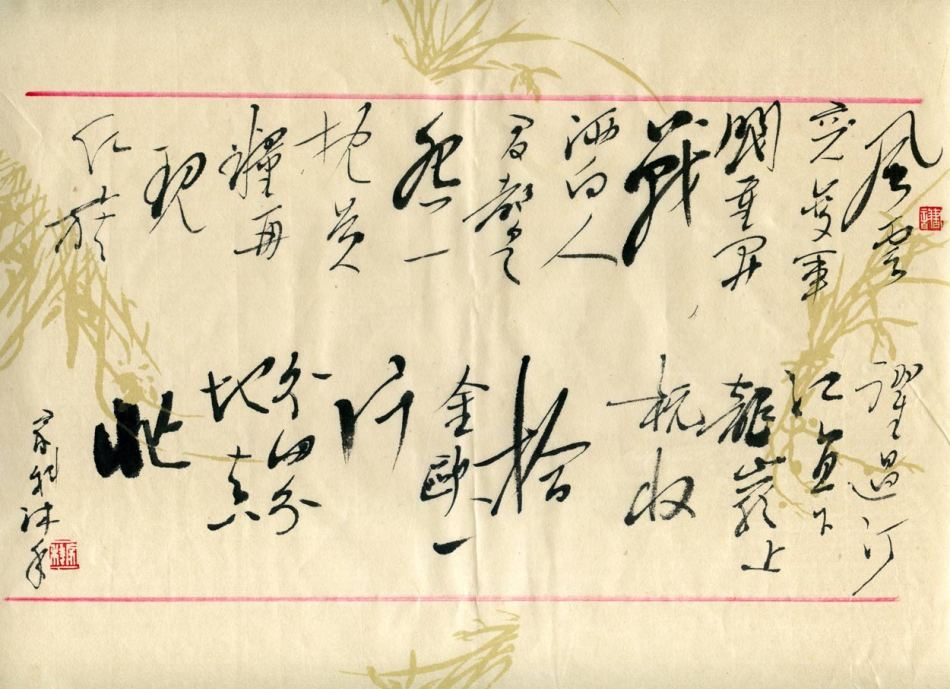 風雲
突變軍
閥重開
戰
洒向人
間都是
怨一
枕黃
糧再
現
紅旗
躍過汀
江直下
龍巖上
杭收
拾
金甌一
片
分田分
地真
忙